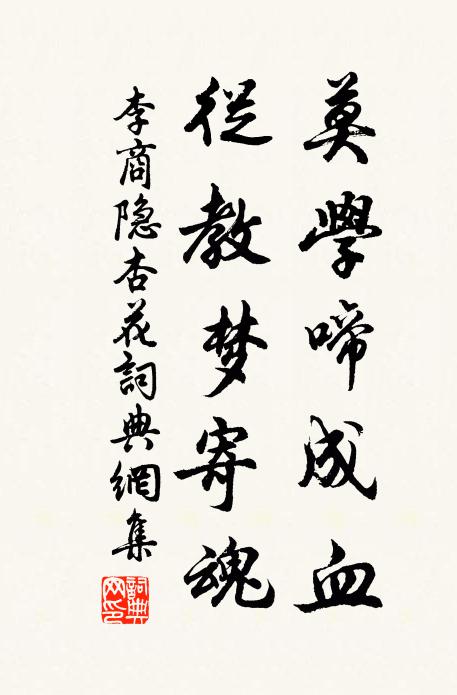 莫學啼成血
從教梦寄魂
李商隐杏花詞典網集
詞典网印